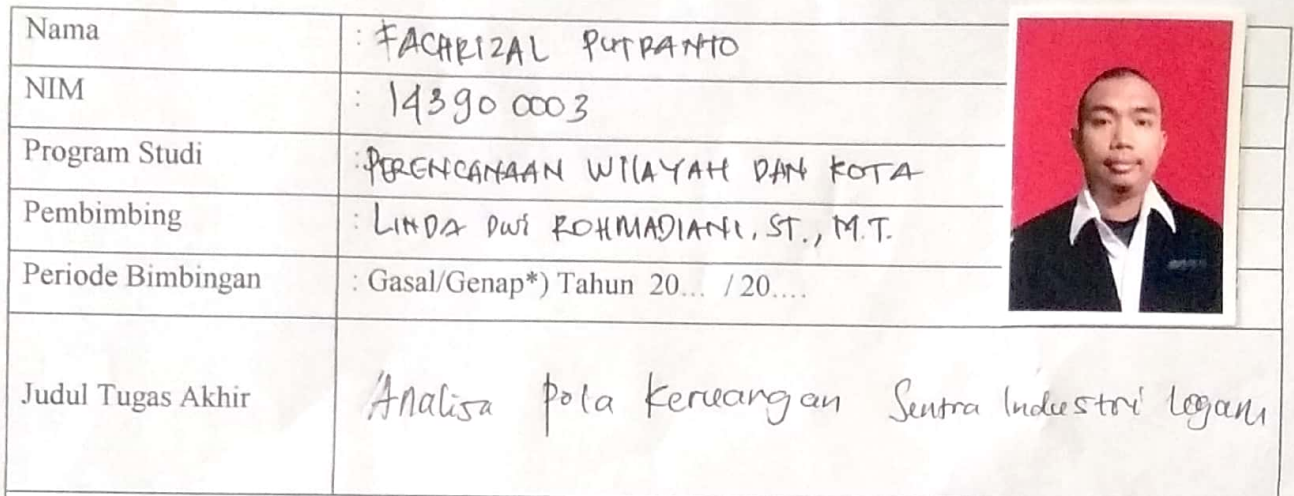 Nama : FACHRIZAL PUTRANTO
NIM : 14390 0003
Program Studi : PERENCANAAN WILAYAH DAN KOTA
Pembimbing : LINDA DWI ROHMADIANI, ST., M.T.
Periode Bimbingan : Gasal/Genap*) Tahun 20... / 20....
Judul Tugas Akhir Analisa pola keruangan Sentra Industri Logam